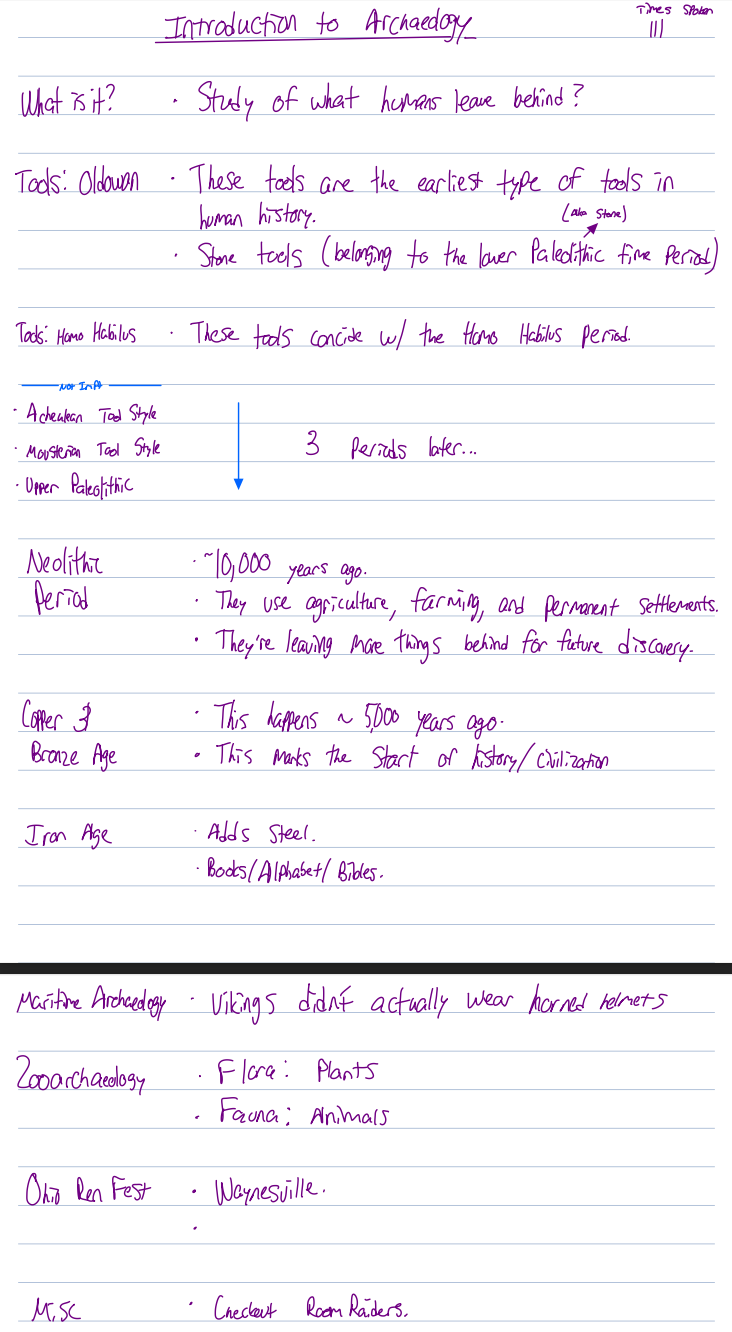 Introduction to Archaeology
Times Spoken
|||
What is it? · Study of what humans leave behind?
Tools: Oldowan · These tools are the earliest type of tools in
human history.
(aka Stone)
· Stone tools (belonging to the lower Paleolithic time Period)
Tools: Homo Habilus · These tools concide w/ the Homo Habilus Period.
Not Info
· Acheulean Tool Style
· Mousterian Tool Style
· Upper Paleolithic
3 Periods later...
Neolithic · ~10,000 years ago.
Period · They use agriculture, farming, and permanent settlements.
· They're leaving more things behind for future discovery.
Copper & · This happens ~ 5,000 years ago.
Bronze Age · This marks the Start of history/civilization
Iron Age · Adds Steel.
· Books/Alphabet/Bibles.
Maritime Archaeology · Vikings didn't actually wear horned helmets
Zooarchaeology · Flora: Plants
· Fauna: Animals
Ohio Ren Fest · Waynesville.
·
Misc · Checkout Room Raiders.